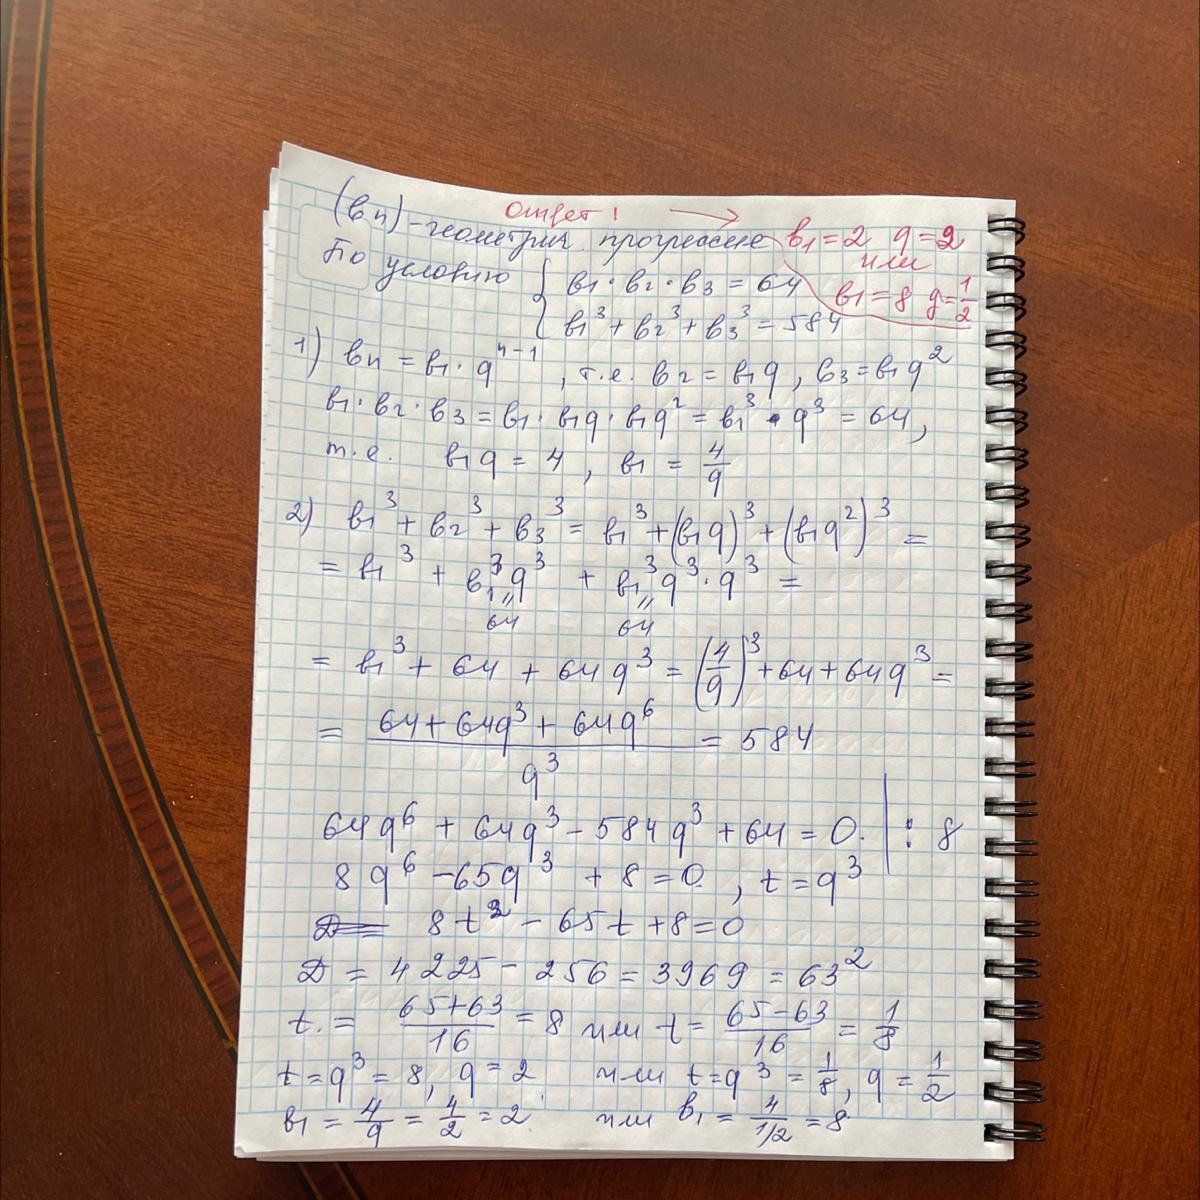 Ответ! →
(bn) - геометрич. прогрессие b1 = 2 q = 2
или
По условию { b1 · b2 · b3 = 64 b1 = 8 q = 1/2
b1³ + b2³ + b3³ = 584
1) bn = b1 · q^(n-1), т.е. b2 = b1q, b3 = b1q²
b1 · b2 · b3 = b1 · b1q · b1q² = b1³ · q³ = 64,
т.е. b1q = 4, b1 = 4/q
2) b1³ + b2³ + b3³ = b1³ + (b1q)³ + (b1q²)³ =
= b1³ + b1³q³ + b1³q³ · q³ =
" "
64 64
= b1³ + 64 + 64q³ = (4/q)³ + 64 + 64q³ =
= (64 + 64q³ + 64q⁶)/q³ = 584
64q⁶ + 64q³ - 584q³ + 64 = 0. | : 8
8q⁶ - 65q³ + 8 = 0, t = q³
8t² - 65t + 8 = 0
D = 4225 - 256 = 3969 = 63²
t = (65+63)/16 = 8 или t = (65-63)/16 = 1/8
t = q³ = 8, q = 2 или t = q³ = 1/8, q = 1/2
b1 = 4/q = 4/2 = 2 или b1 = 4/1/2 = 8